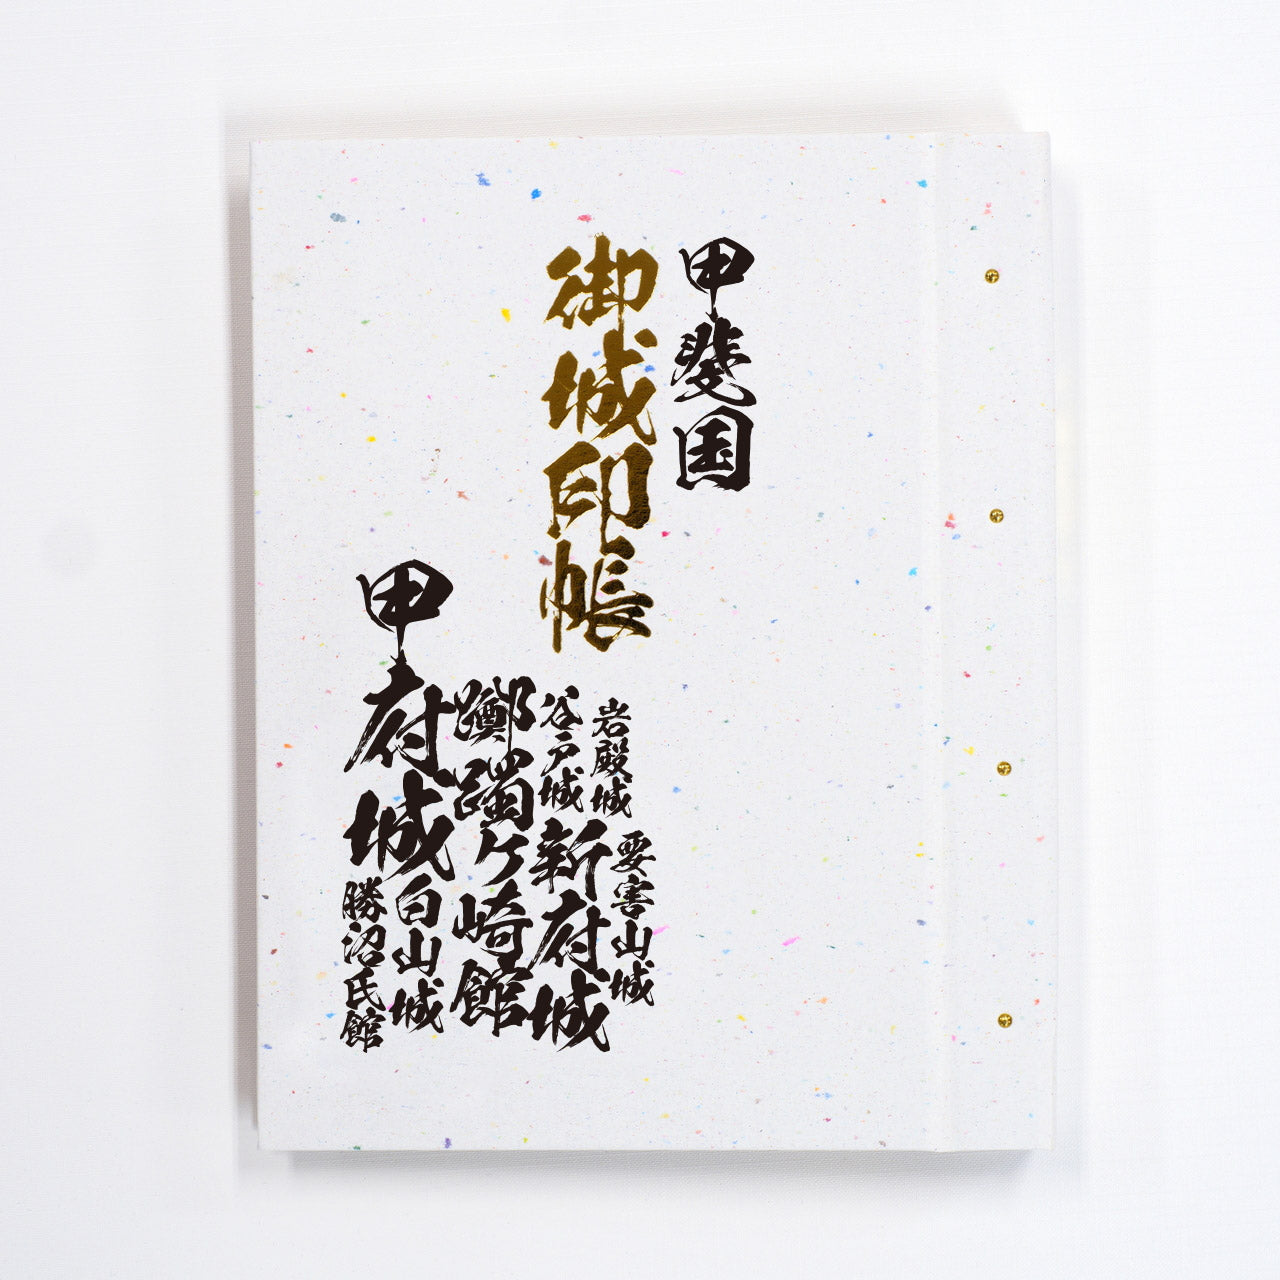 甲斐国
御城印帳
岩殿城
要害山城
谷戸城
新府城
躑躅ヶ崎館
甲府城
白山城
勝沼氏館